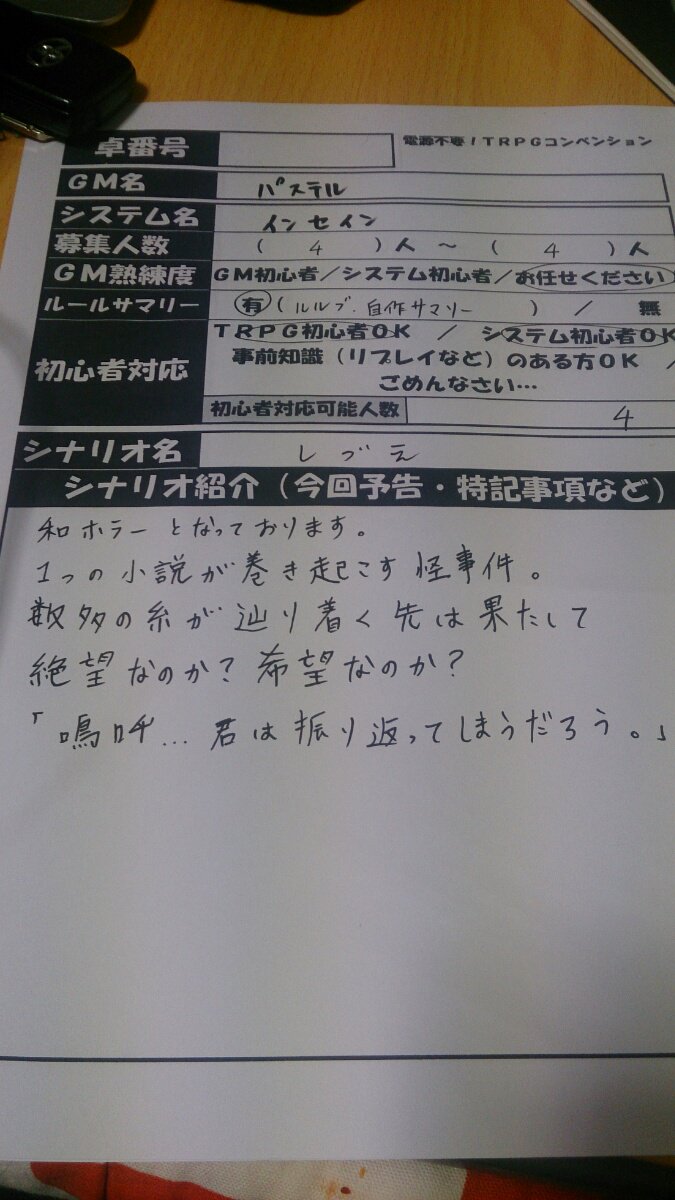 電源不要!TRPGコンベンション
卓番号
GM名 パステル
システム名 インセイン
募集人数 ( 4 )人 ~ ( 4 )人
GM熟練度 GM初心者/システム初心者/お任せください
ルールサマリー 有(ルルブ・自作サマリー ) / 無
初心者対応 TRPG初心者OK / システム初心者OK
事前知識(リプレイなど)のある方OK /
ごめんなさい…
初心者対応可能人数 4
シナリオ名 しづえ
シナリオ紹介(今回予告・特記事項など)
和ホラーとなっております。
1つの小説が巻き起こす怪事件。
数多の糸が辿り着く先は果たして
絶望なのか?希望なのか?
「嗚呼…君は振り返ってしまうだろう。」